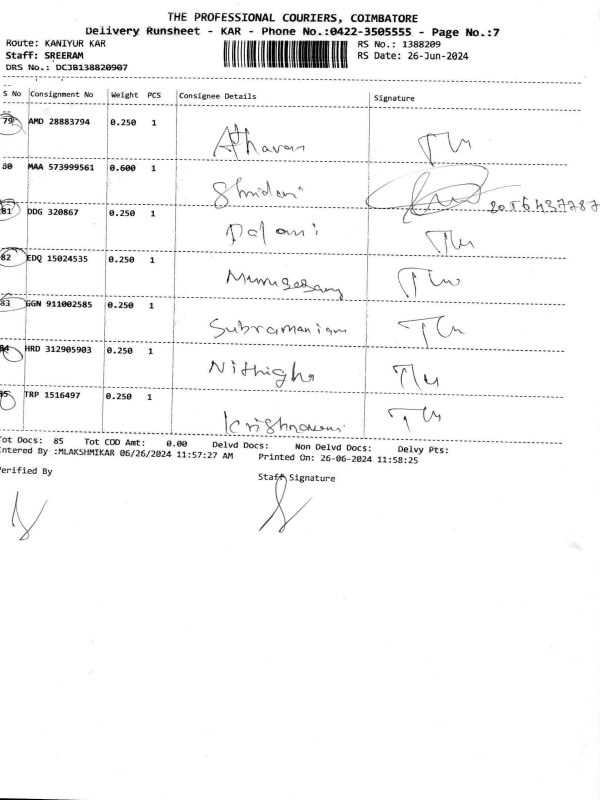 THE PROFESSIONAL COURIERS, COIMBATORE
Delivery Runsheet - KAR - Phone No.:0422-3505555 - Page No.:7
Route: KANIYUR KAR RS No.: 1388209
Staff: SREERAM RS Date: 26-Jun-2024
DRS No.: DCJB138820907
S No Consignment No Weight PCS Consignee Details Signature
79 AMD 28883794 0.250 1
Atharan
80 MAA 573999561 0.600 1
Shridari
81 DDG 320867 0.250 1
82 EDQ 15024535 0.250 1
Murugesang
83 GGN 911002585 0.250 1
Subramaniam
84 HRD 312905903 0.250 1
Nithigha
85 TRP 1516497 0.250 1
Krishnaveni
Tot Docs: 85 Tot COD Amt: 0.00 Delvd Docs: Non Delvd Docs: Delvy Pts:
Entered By :MLAKSHMIKAR 06/26/2024 11:57:27 AM Printed On: 26-06-2024 11:58:25
Verified By Staff Signature